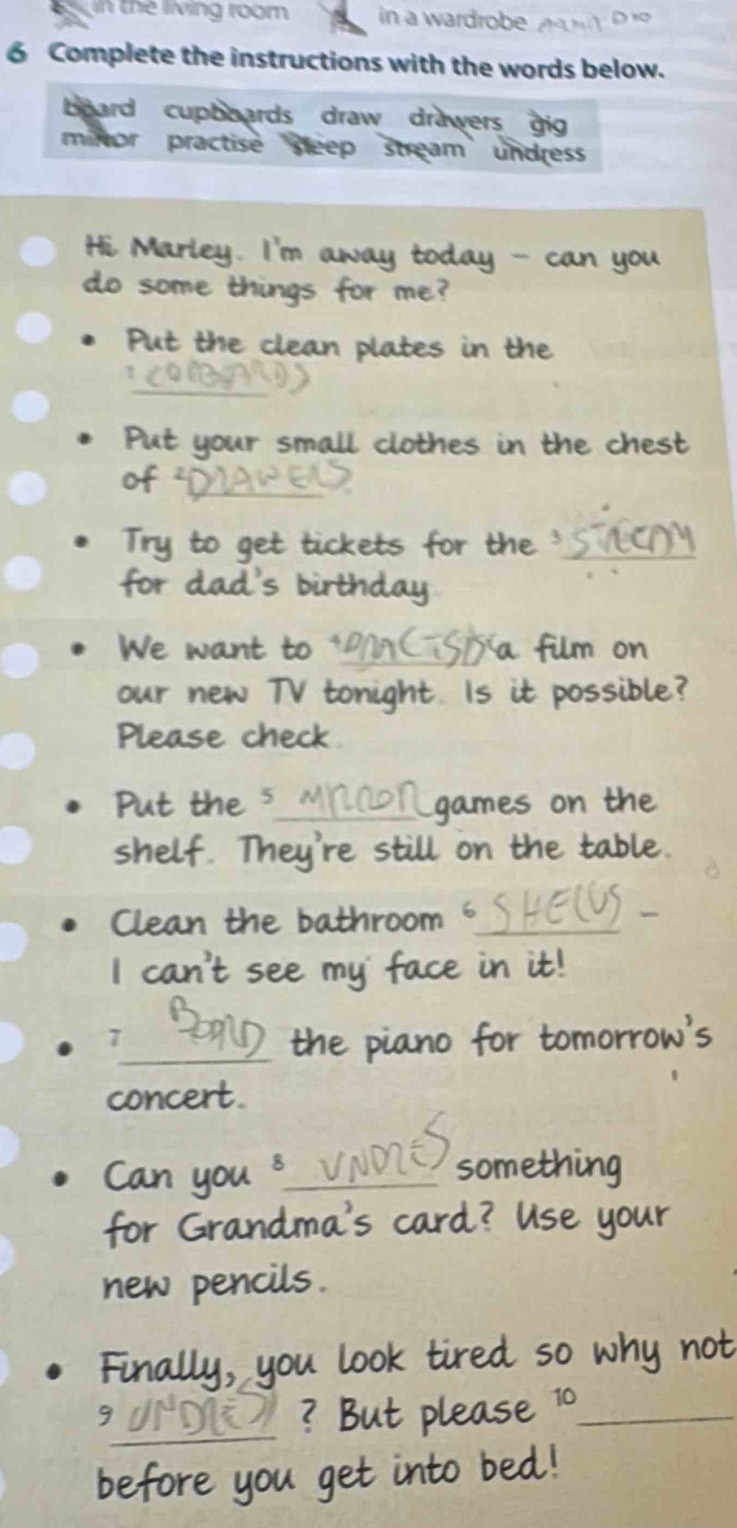 in the living room in a wardrobe
6 Complete the instructions with the words below.
board cupboards draw drawers gig
mirror practise sleep stream undress
Hi Marley. I'm away today - can you
do some things for me?
• Put the clean plates in the
1
• Put your small clothes in the chest
of 2 DRAWERS.
• Try to get tickets for the 3
for dad's birthday
• We want to 4 a film on
our new TV tonight. Is it possible?
Please check.
• Put the 5 games on the
shelf. They're still on the table.
• Clean the bathroom 6 -
I can't see my face in it!
• 7 the piano for tomorrow's
concert.
• Can you 8 something
for Grandma's card? Use your
new pencils.
• Finally, you look tired so why not
9 ? But please 10
before you get into bed!